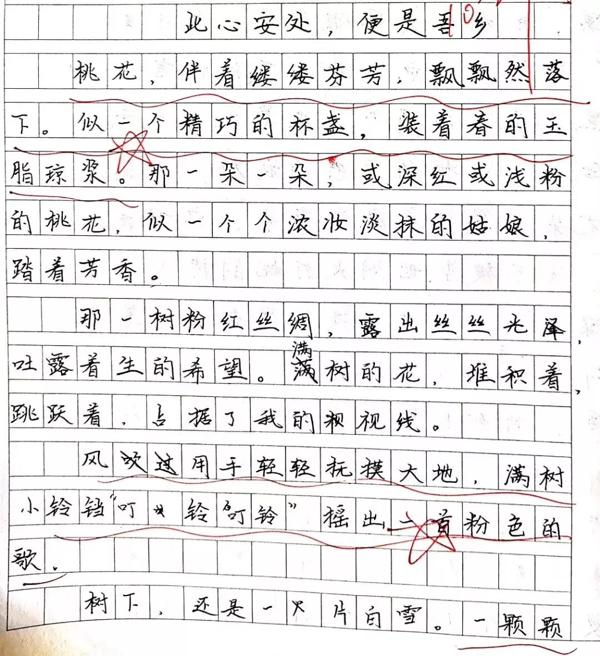 此心安处，便是吾乡
桃花，伴着缕缕芬芳，飘飘然落
下。似一个精巧的杯盏，装着春的玉
脂琼浆。那一朵一朵，或深红或浅粉
的桃花，似一个个浓妆淡抹的姑娘，
踏着芳香。
那一树粉红丝绸，露出丝丝光泽，
吐露着生的希望。满树的花，堆积着，
跳跃着，占据了我的视线。
风用手轻轻抚摸大地，满树
小铃铛“叮铃叮铃”摇出一首粉色的
歌。
树下，还是一片白雪。一颗颗